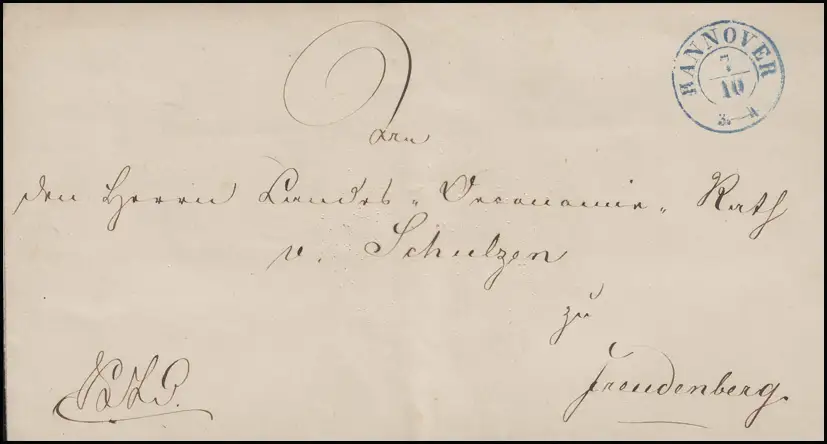 HANNOVER
7
10
3-4
An
den Herrn Landes-Oeconomie-Rath
v. Schulzen
zu
Freudenberg.